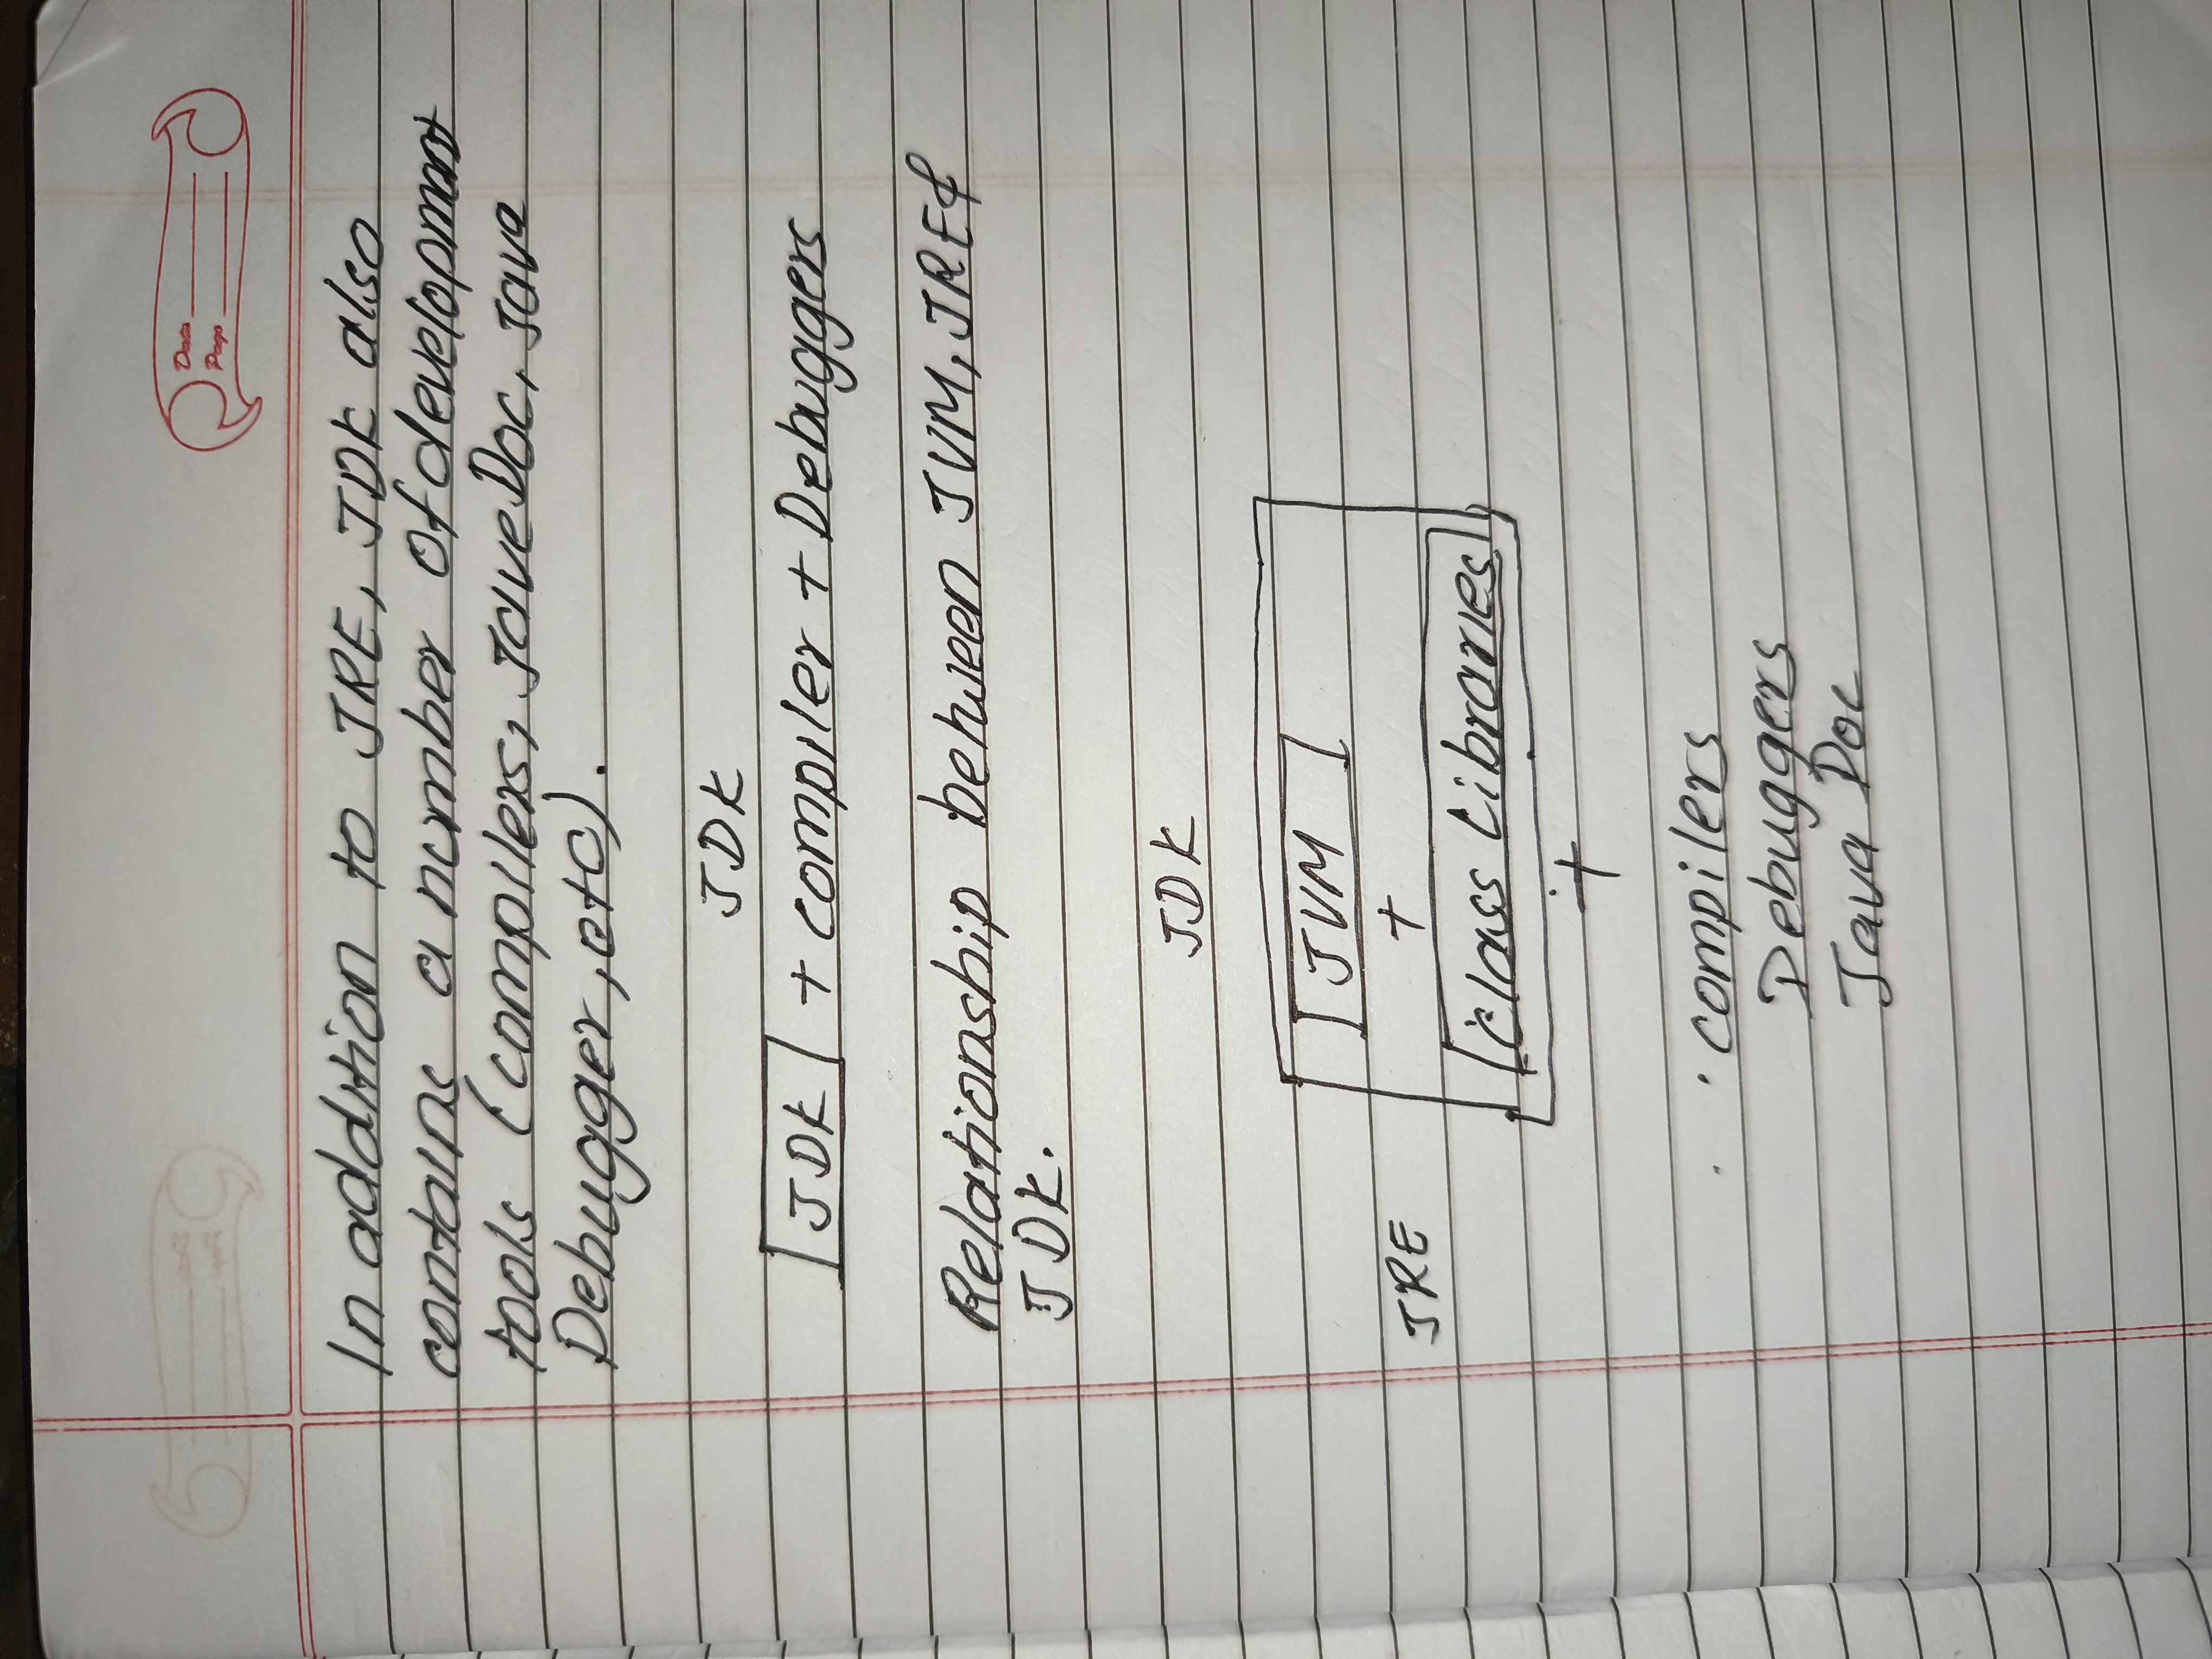 Date
Page
In addition to JRE, JDK also
contains a number of development
tools (compilers, JaveDoc, Java
Debugger, etc).
JDK
JDK + compiler + Debuggers
Relationship between JVM, JRE &
JDK.
JDK
JVM
+
JRE
Class Libraries
+
compilers
Debuggers
Java Doc